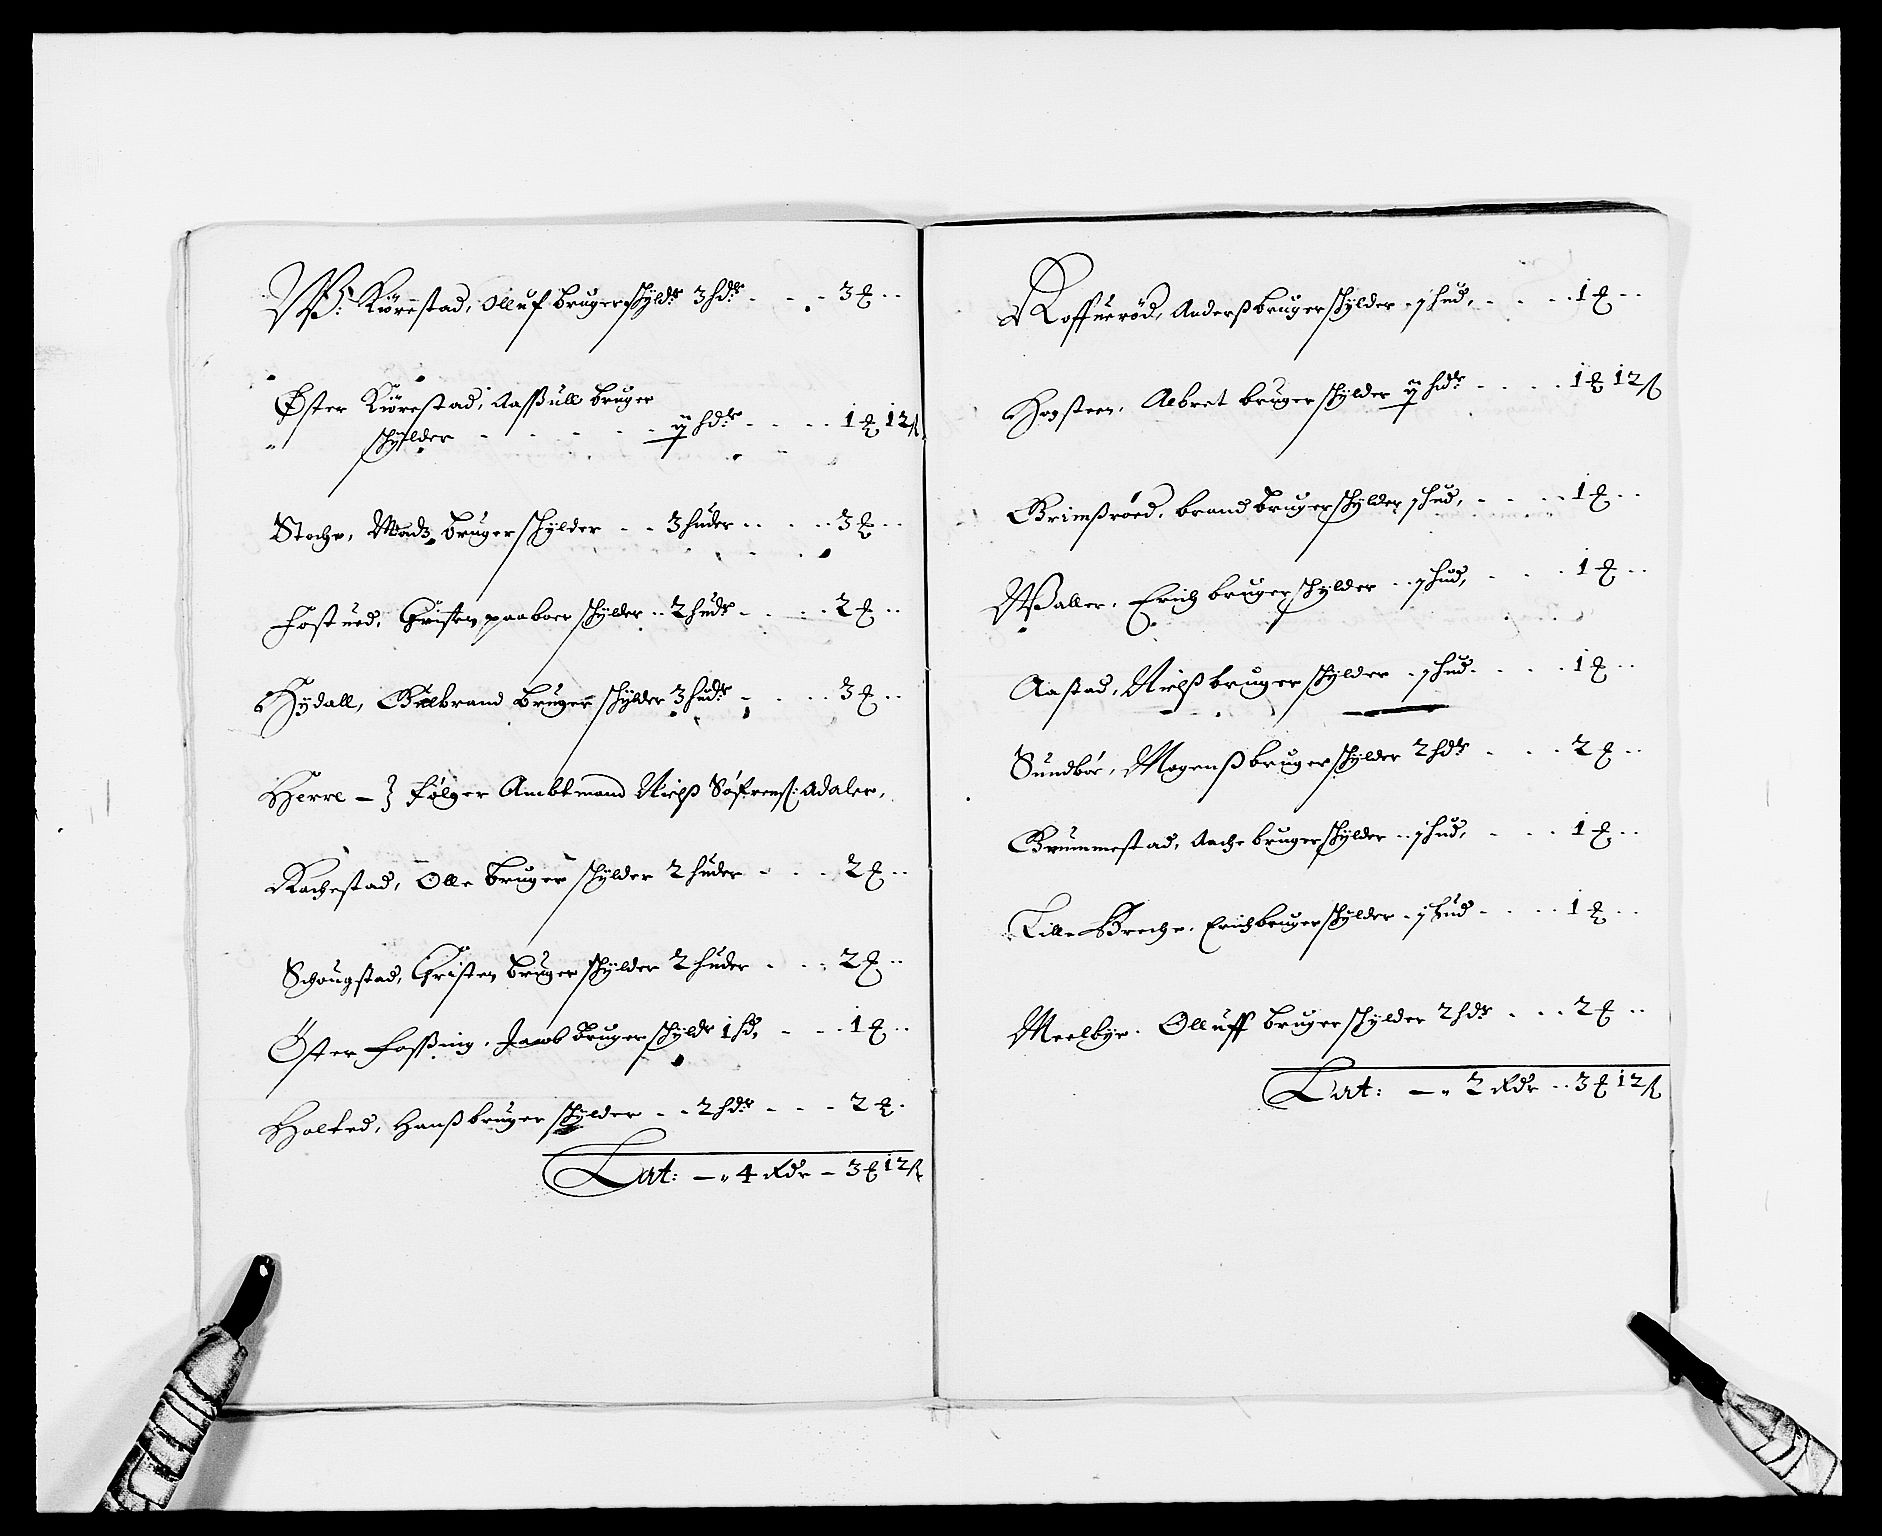 W: Kiörrestad, Olluf bruger schyldr 3 hdr - - - 3 ℔ - -
Øster Kiörestad, Aassüll bruger
schÿlder - - - - - ij hdr - - - - 1 ℔ 12 ß
Stoche, Madz bruger schÿlder - - 3 huder - - - - 3 ℔ - -
Fostued, Christen paaboer schÿlder - - 2 hudr - - - - 2 ℔ - -
Hÿdall, Gulbrand bruger schÿlder 3 hudr - - - - 3 ℔ - -
Herre - Z følger Ambtmand Nielß Söfrenß: Adaler,
Rachestad, Olle bruger schÿlder 2 huder - - - - 2 ℔ - -
Schougstad, Christen bruger schÿlder 2 huder - - - 2 ℔ - -
Öster Fossing, Jacob bruger schÿldr 1 hd, - - - 1 ℔ - -
Holted, Hanß bruger schÿlder - - 2 hdr - - - 2 ℔ -
Lat: — 4 Rdr - 3 ℔ 12 ß
Koffueröd, Anderß bruger schÿlder - j hud, - - - - 1 ℔ - -
Hogsteen, Albret bruger schÿlder ij hdr - - - - 1 ℔ 12 ß
Grimßröed, brand bruger schÿlder j hud, - - - - 1 ℔ - -
Waller, Erich bruger schÿlder - - j hud, - - - 1 ℔ - -
Aastad, Nielß bruger schÿlder - j hud - - - - 1 ℔ - -
Sundbÿe, Mogenß bruger schÿlder 2 hdr - - - 2 ℔ - -
Grummestad, Aache bruger schÿlder - - j hud, - - - 1 ℔ - -
Lille Breche, Erich bruger schÿlder - j hud - - - - 1 ℔ - -
Meelbÿe, Olluff bruger schÿlder 2 hdr - - - 2 ℔ - -
Lat: — 2 Rdr - - 3 ℔ 12 ß